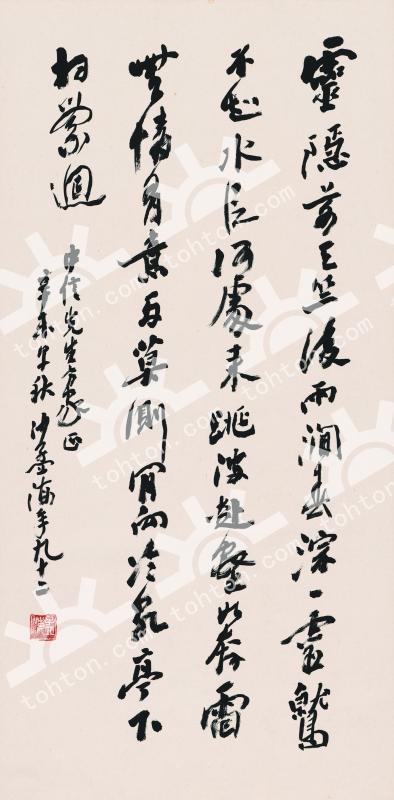 靈隱前天竺後兩澗春淙一靈鷲
不知水從何處來跳波赴壑如奔雷
無情有意兩莫測肯向冷泉亭下
相縈迴
中信先生方家正
辛未早秋沙孟海年九十二
tohton.com